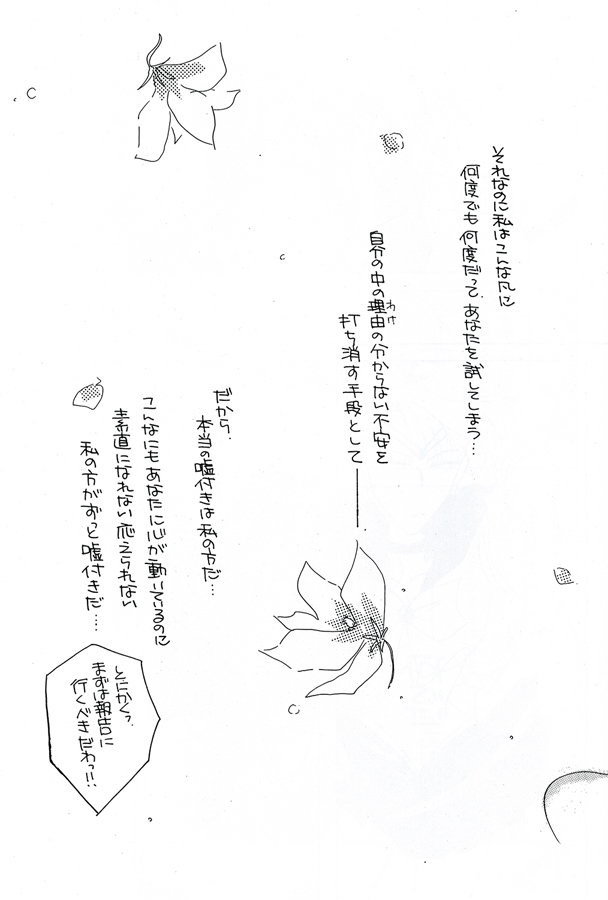 それなのに私はこんな風に
何度でも何度だって、あなたを試してしまう…
自分の中の理由の分からない不安を
わけ
打ち消す手段として――
だから、
本当の嘘付きは私の方だ…
こんなにもあなたに心が動いているのに
素直になれない応えられない
私の方がずっと嘘付きだ……
とにかくっ、
まずは報告に
行くべきだわっ!!